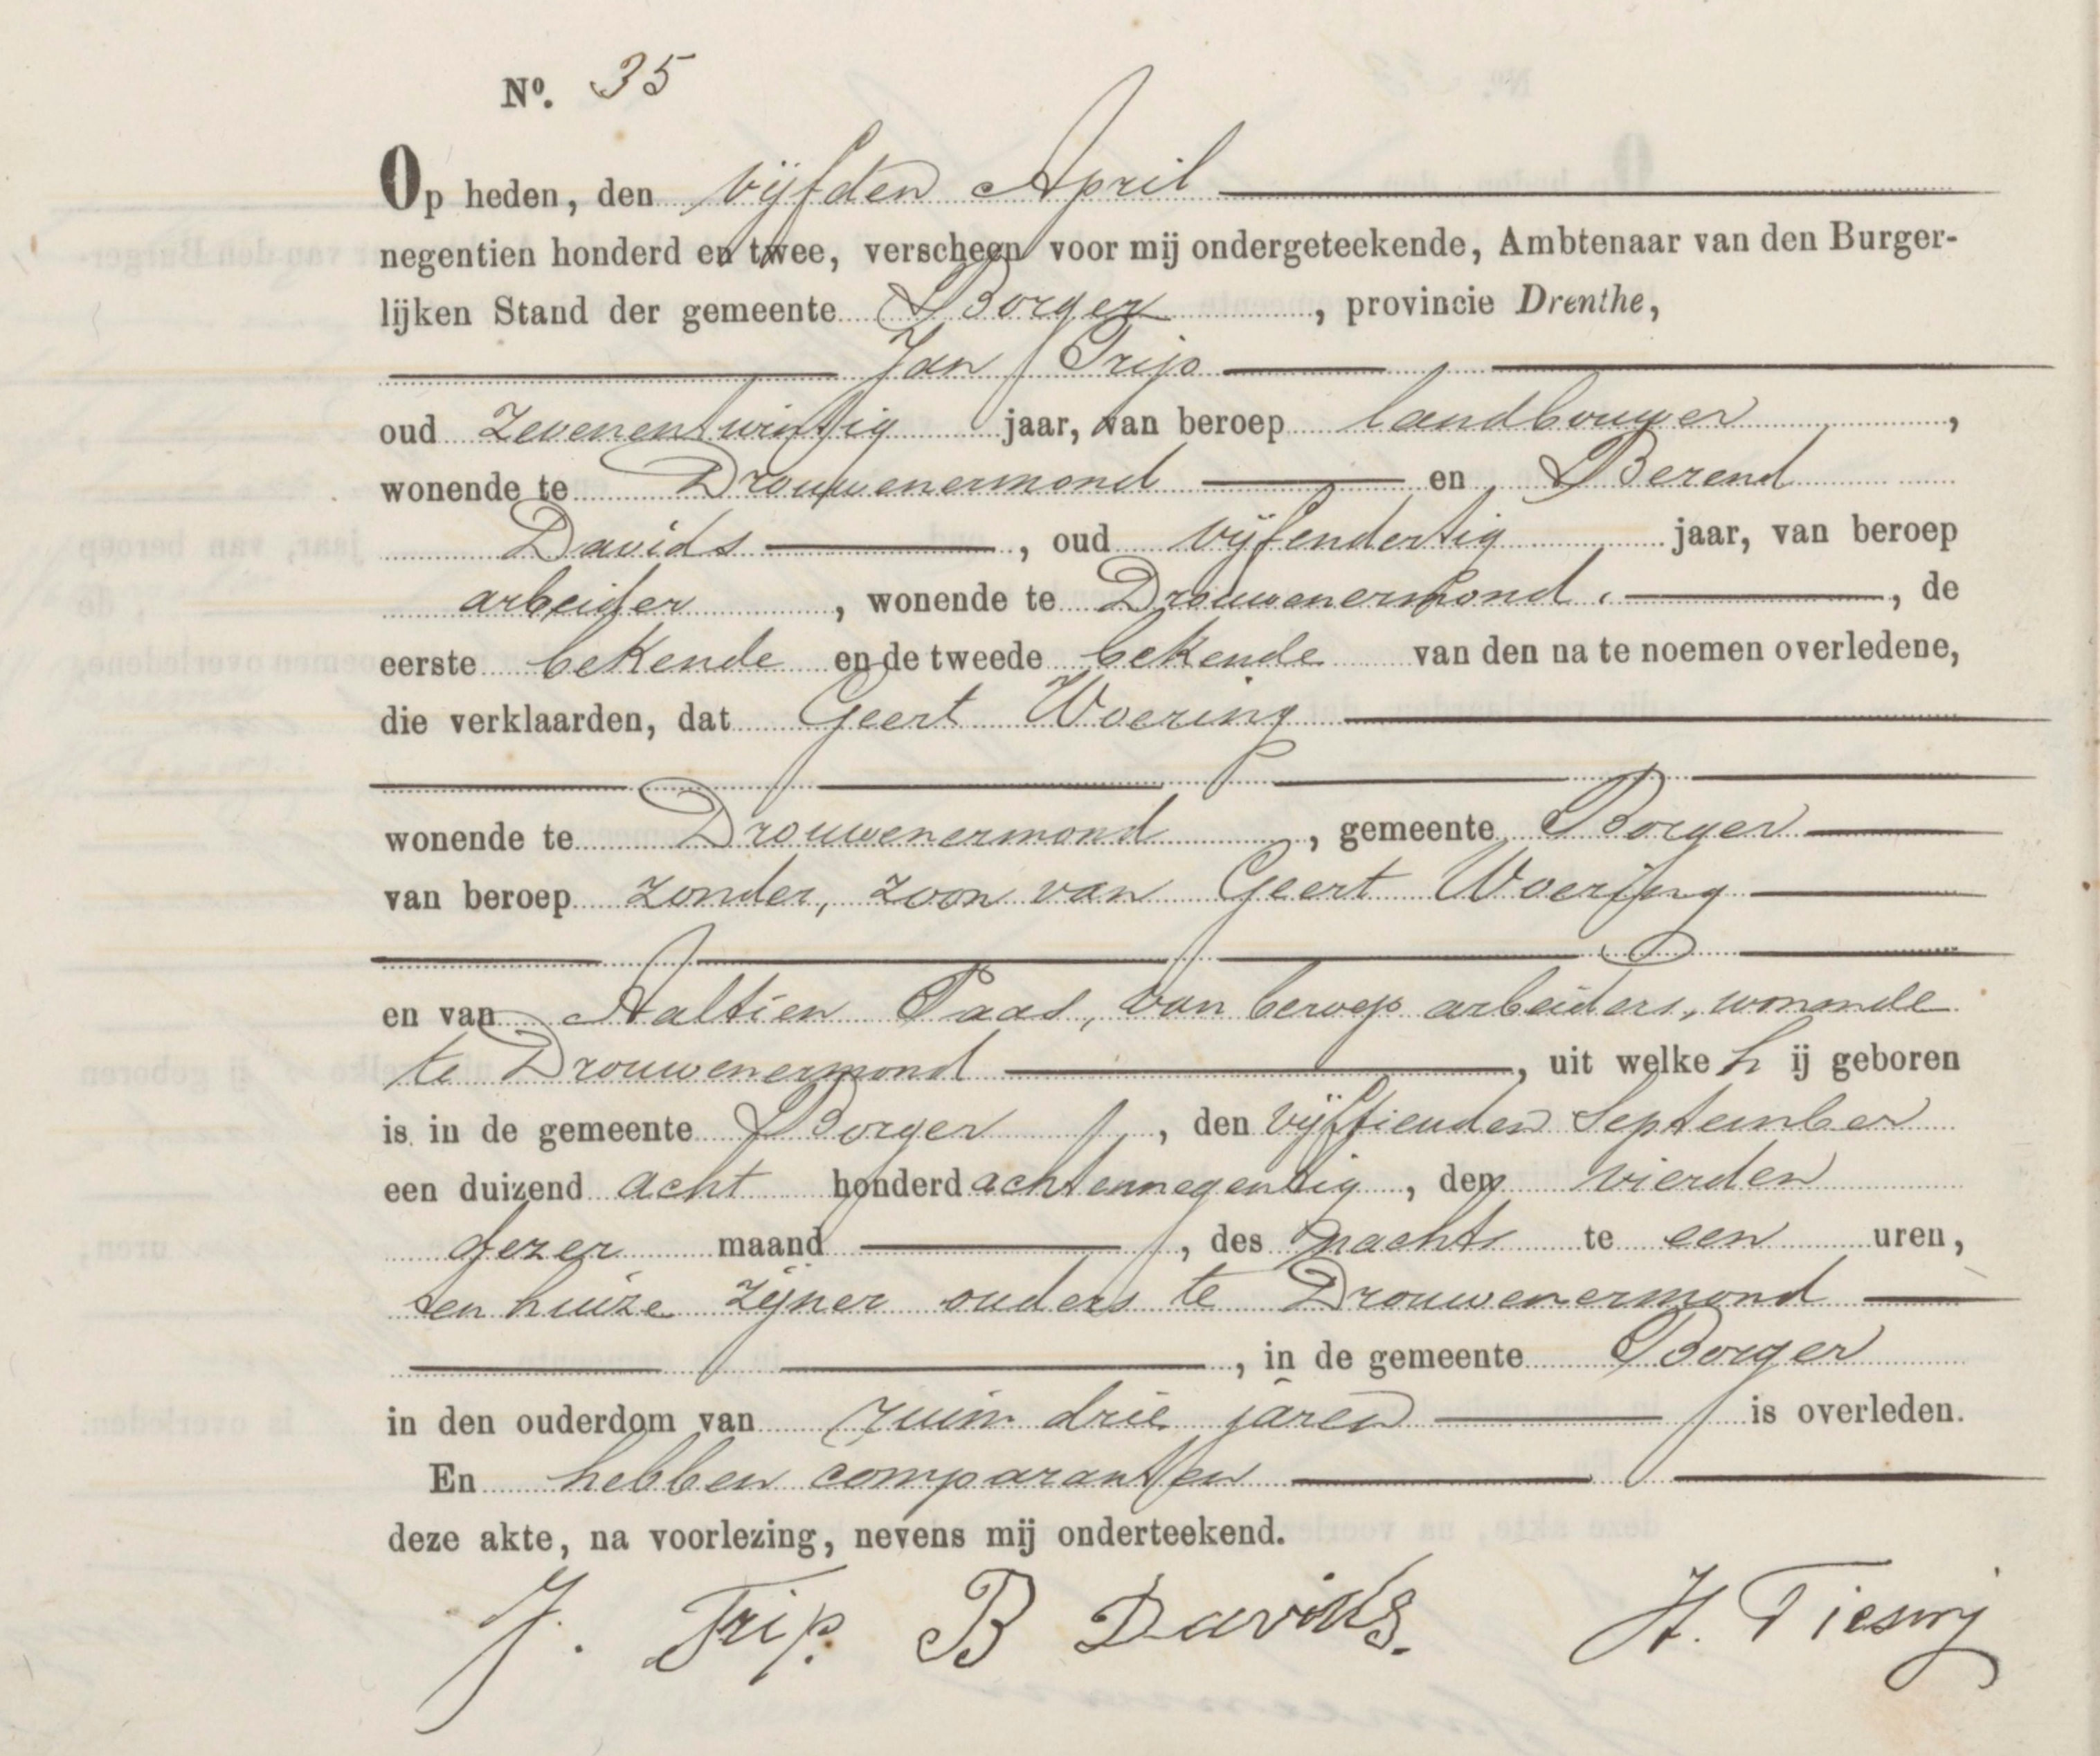 Nº. 35
Op heden, den vijfden April
negentien honderd en twee, verscheen voor mij ondergeteekende, Ambtenaar van den Burger-
lijken Stand der gemeente Borger, provincie Drenthe,
Jan Trip
oud zevenentwintig jaar, van beroep landbouwer,
wonende te Drouwenermond en Berend
Davids, oud vijfendertig jaar, van beroep
arbeider, wonende te Drouwenermond, de
eerste bekende en de tweede bekende van den na te noemen overledene,
die verklaarden, dat Geert Woering
wonende te Drouwenermond, gemeente Borger
van beroep zonder, zoon van Geert Woering
en van Aaltien Paas, van beroep arbeiders, wonende
te Drouwenermond, uit welke h ij geboren
is in de gemeente Borger, den vijftienden September
een duizend acht honderd achtennegentig, den vierden
dezer maand, des nachts te een uren,
ten huize zijner ouders te Drouwenermond
, in de gemeente Borger
in den ouderdom van ruim drie jaren is overleden.
En hebben comparanten
deze akte, na voorlezing, nevens mij onderteekend.
J. Trip. B Davids. H.